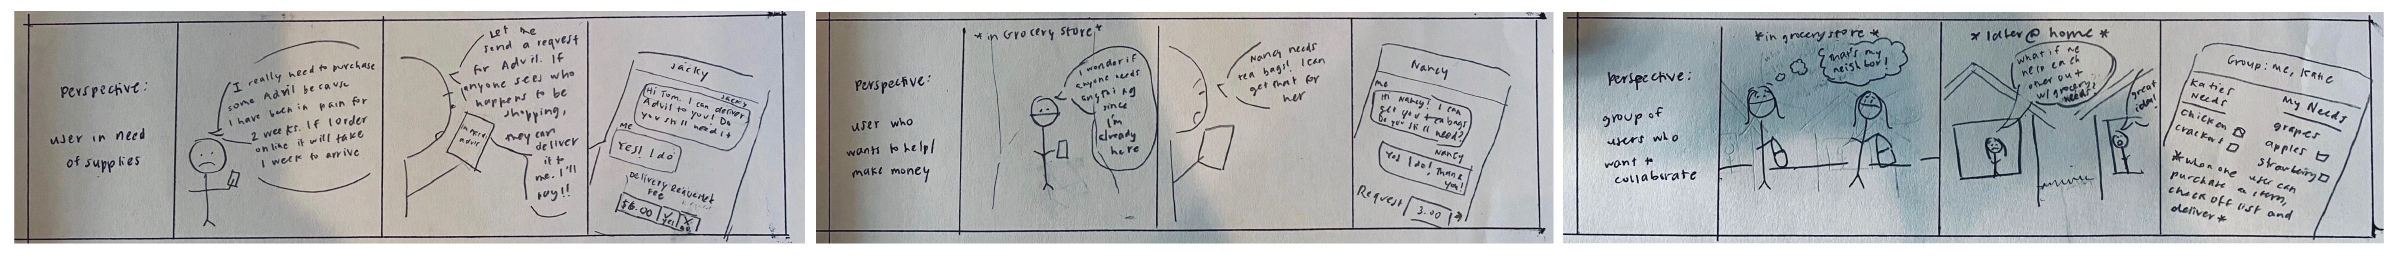 Perspective:
user in need
of supplies
I really need to purchase
some Advil because
I have been in pain for
2 weeks. If I order
online it will take
1 week to arrive
Let me
send a request
for Advil. If
anyone sees who
happens to be
shopping,
they can
deliver
it to
me. I'll
pay!!
advil
Jacky
Jacky
Hi Tom. I can deliver
Advil to you! Do
you still need it
me
Yes! I do
Delivery Requested
Fee
$6.00
Perspective:
user who
wants to help/
make money
*in Grocery store*
I wonder if
anyone needs
anything
since
I'm
already
here
Nancy needs
tea bags! I can
get that for
her
Nancy
me
Hi Nancy! I can
get you tea bags
Do you still need?
Nancy
Yes I do! Thank
you!
Request 3.00
Perspective:
group of
users who
want to
collaborate
*in grocery store*
that's my
neighbor!
*later @ home*
what if we
help each
other out
w/ grocery
needs?
great
idea!
Group: me, Katie
Katies
Needs
chicken
crackers
My Needs
grapes
apples
strawberry
*when one user can
purchase a item,
check off list and
deliver*